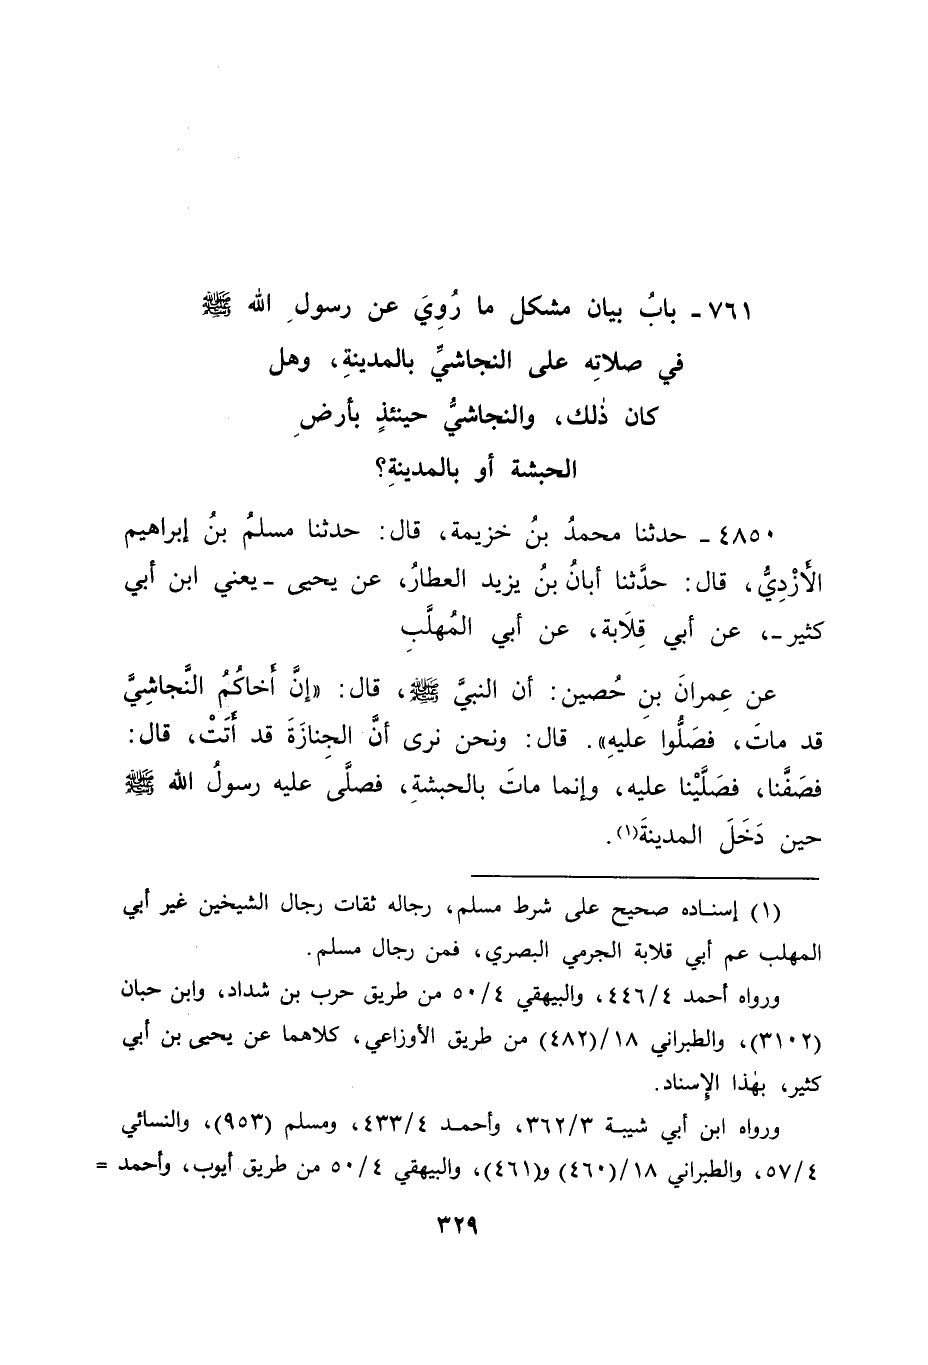 ٧٦١ ـ بابُ بيان مشكل ما رُوِيَ عن رسولِ الله ﷺ
في صلاتِه على النجاشيِّ بالمدينةِ، وهل
كان ذٰلك، والنجاشيُّ حينئذٍ بأرضِ
الحبشة أو بالمدينةِ؟
٤٨٥٠ ـ حدثنا محمدُ بنُ خزيمة، قال: حدثنا مسلمُ بنُ إبراهيم
الأَزْدِيُّ، قال: حدَّثنا أبانُ بنُ يزيد العطارُ، عن يحيى ـ يعني ابن أبي
كثير ـ، عن أبي قِلَابة، عن أبي المُهلَّبِ
عن عِمرانَ بنِ حُصين: أن النبيَّ ﷺ، قال: «إنَّ أَخاكُمُ النَّجاشِيَّ
قد ماتَ، فصَلُّوا عليهِ». قال: ونحن نرى أنَّ الجِنازَةَ قد أَتَتْ، قال:
فصَفَّنا، فصَلَّيْنا عليه، وإنما ماتَ بالحبشةِ، فصلَّى عليه رسولُ الله ﷺ
حين دَخَلَ المدينةَ(١).
(١) إسناده صحيح على شرط مسلم، رجاله ثقات رجال الشيخين غير أبي
المهلب عم أبي قلابة الجرمي البصري، فمن رجال مسلم.
ورواه أحمد ٤٤٦/٤، والبيهقي ٥٠/٤ من طريق حرب بن شداد، وابن حبان
(٣١٠٢)، والطبراني ١٨/(٤٨٢) من طريق الأوزاعي، كلاهما عن يحيى بن أبي
كثير، بهٰذا الإِسناد.
ورواه ابن أبي شيبة ٣٦٢/٣، وأحمد ٤٣٣/٤، ومسلم (٩٥٣)، والنسائي
٥٧/٤، والطبراني ١٨/(٤٦٠) و(٤٦١)، والبيهقي ٥٠/٤ من طريق أيوب، وأحمد =
٣٢٩